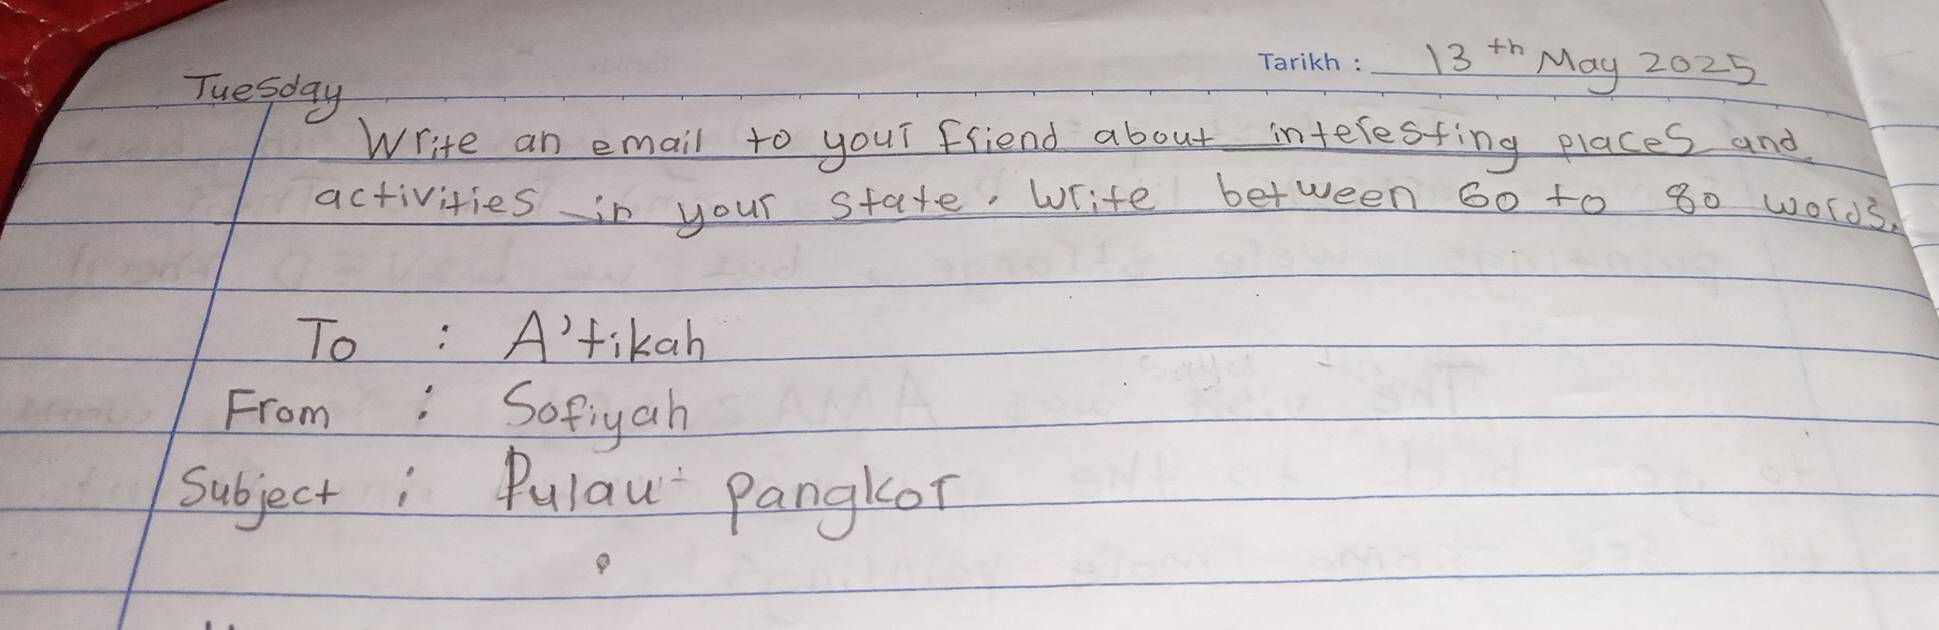 Tarikh : 13th May 2025
Tuesday
Write an email to your friend about interesting places and
activities in your state. Write between 60 to 80 words.
To : A'tikah
From : Sofiyah
Subject : Pulau Pangkor